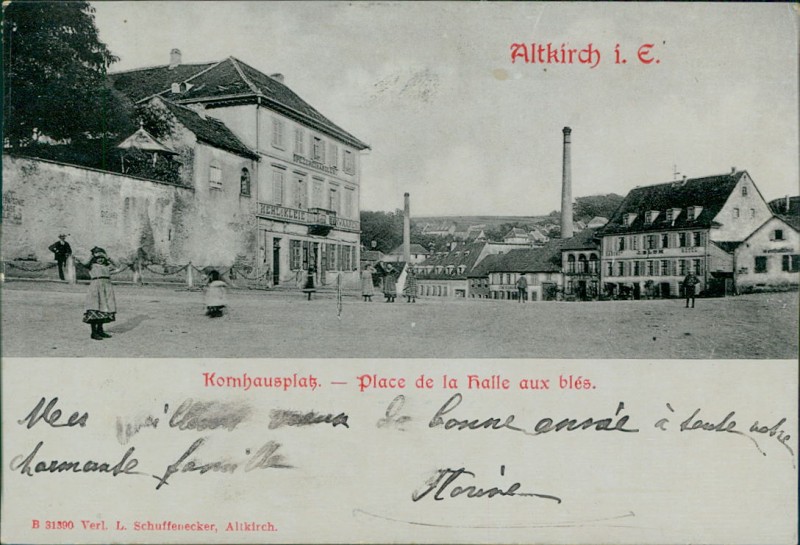 Altkirch i. E.
Kornhausplatz. — Place de la Halle aux blés.
Mes meilleurs vœux de bonne année à toute votre
charmante famille
Florine
B 31390 Verl. L. Schuffenecker, Altkirch.